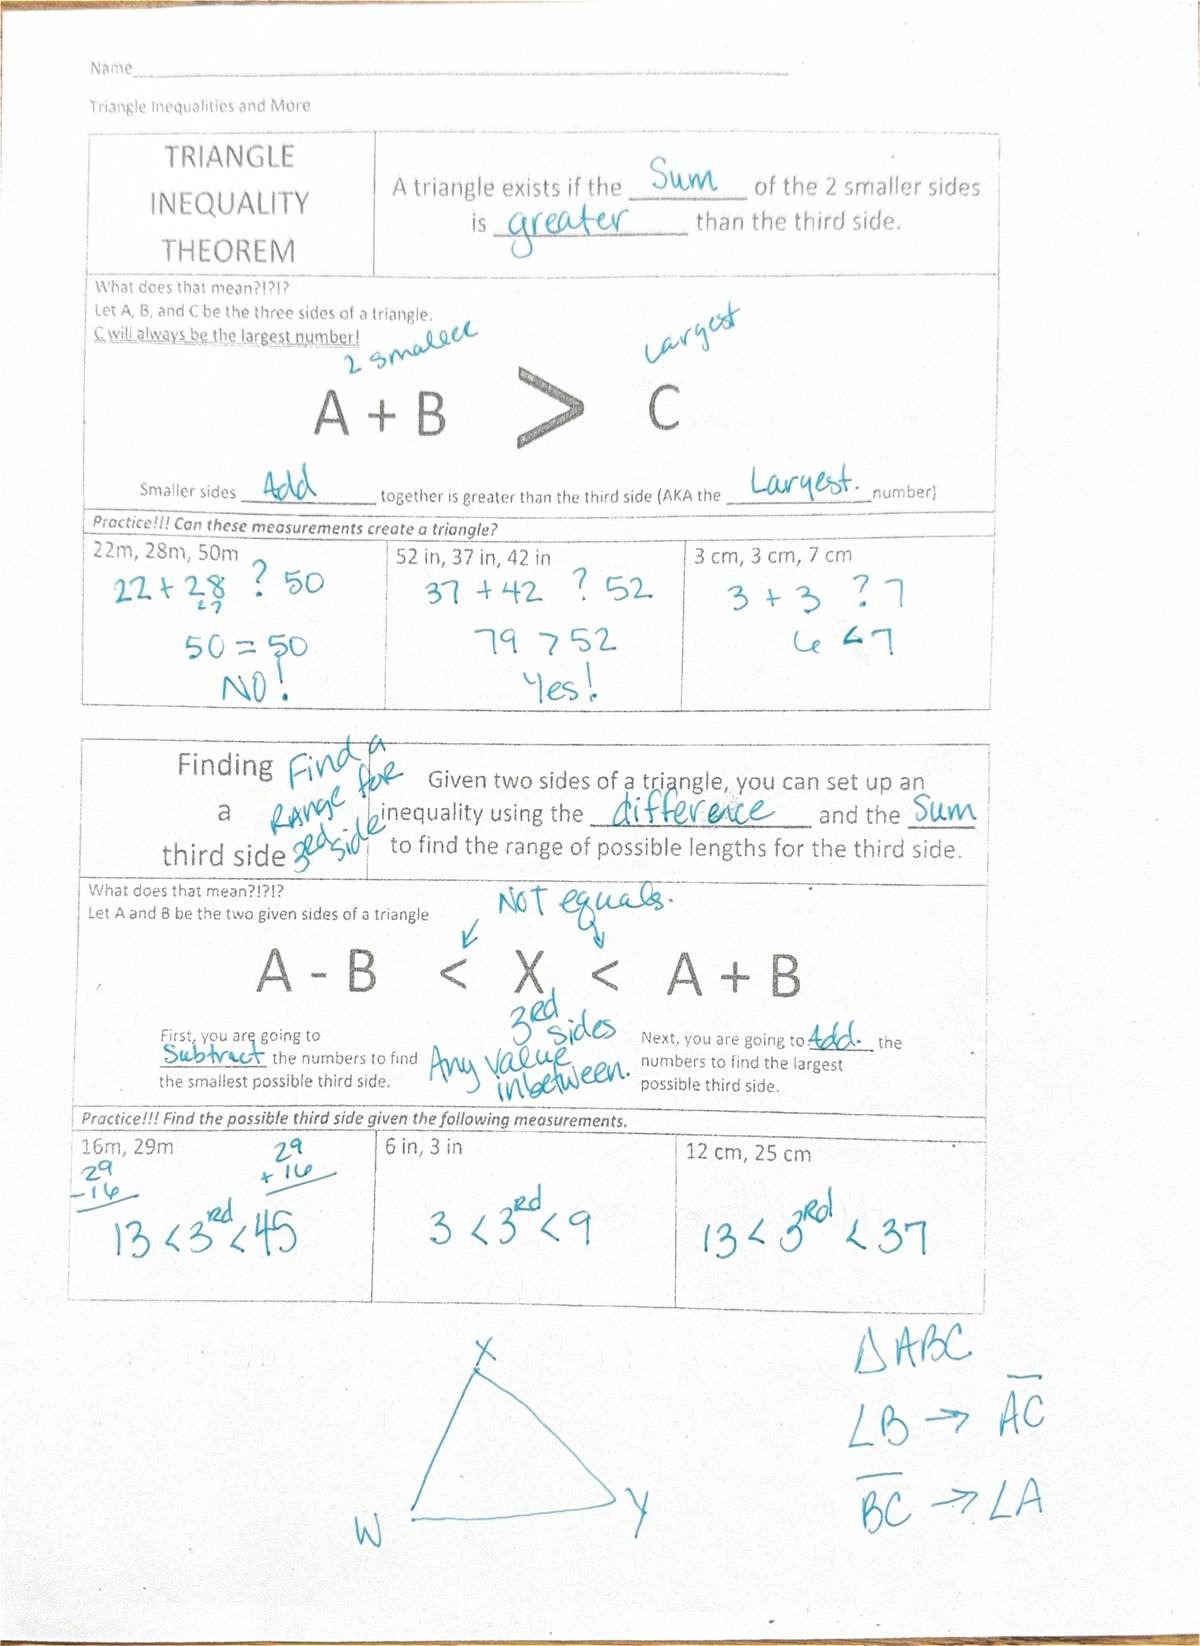 Name
Triangle Inequalities and More
TRIANGLE
INEQUALITY
THEOREM
A triangle exists if the Sum of the 2 smaller sides
is greater than the third side.
What does that mean?!?!?
Let A, B, and C be the three sides of a triangle.
C will always be the largest number!
2 smaller
Largest
A + B > C
Smaller sides Add together is greater than the third side (AKA the Largest. number)
Practice!!! Can these measurements create a triangle?
22m, 28m, 50m
22 + 28 ? 50
27
50 = 50
NO!
52 in, 37 in, 42 in
37 + 42 ? 52
79 > 52
Yes!
3 cm, 3 cm, 7 cm
3 + 3 ? 7
6 < 7
Finding
a
third side
Find a
Range for
3rd side
Given two sides of a triangle, you can set up an
inequality using the difference and the Sum
to find the range of possible lengths for the third side.
What does that mean?!?!?
Let A and B be the two given sides of a triangle
Not equals.
A - B < X < A + B
3rd
sides
Any value
inbetween.
First, you are going to
Subtract the numbers to find
the smallest possible third side.
Next, you are going to Add. the
numbers to find the largest
possible third side.
Practice!!! Find the possible third side given the following measurements.
16m, 29m
29
-16
29
+ 16
13 < 3rd < 45
6 in, 3 in
3 < 3rd < 9
12 cm, 25 cm
13 < 3rd < 37
X
W
Y
△ABC
∠B → A̅C̅
B̅C̅ → ∠A